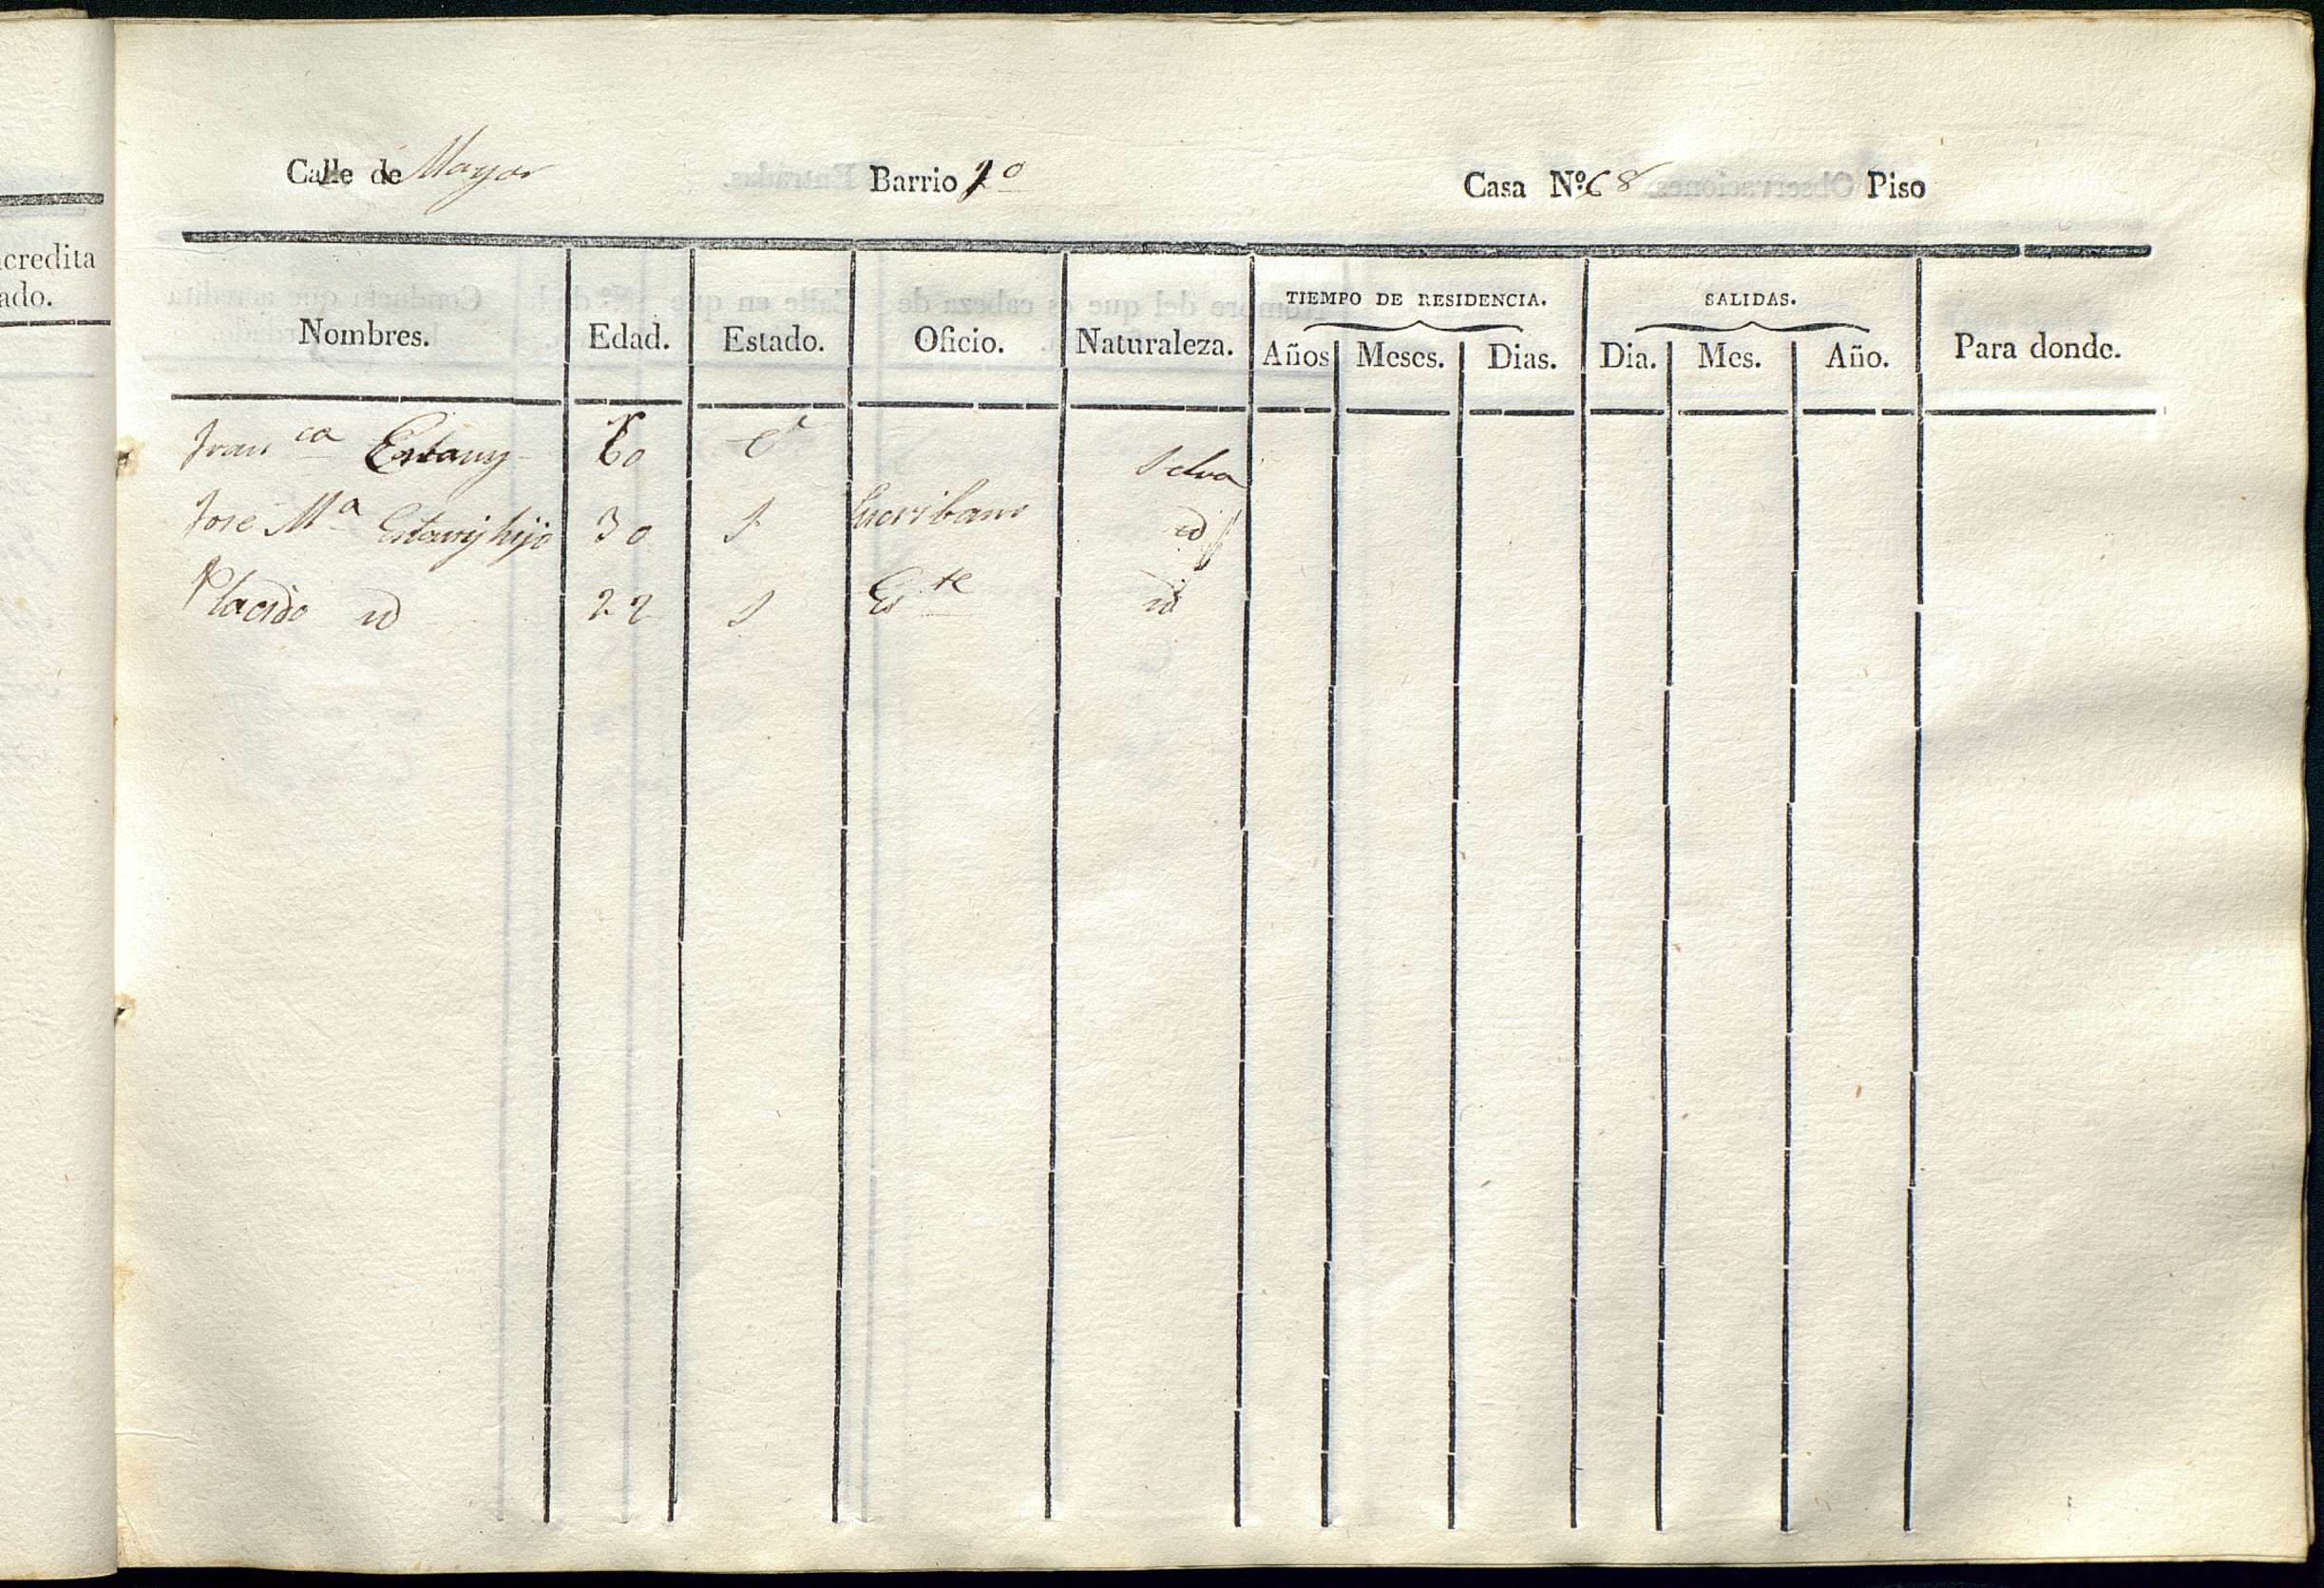 acredita
ado.
Calle de Mayor Barrio 1o Casa N.º 68 Piso
Nombres. Edad. Estado. Oficio. Naturaleza. TIEMPO DE RESIDENCIA. SALIDAS. Para donde.
Años Meses. Dias. Dia. Mes. Año.
Franca Estany 60 Selva
Jose Ma Estany hijo 30 S Escribano id
Placido id 22 S Este id